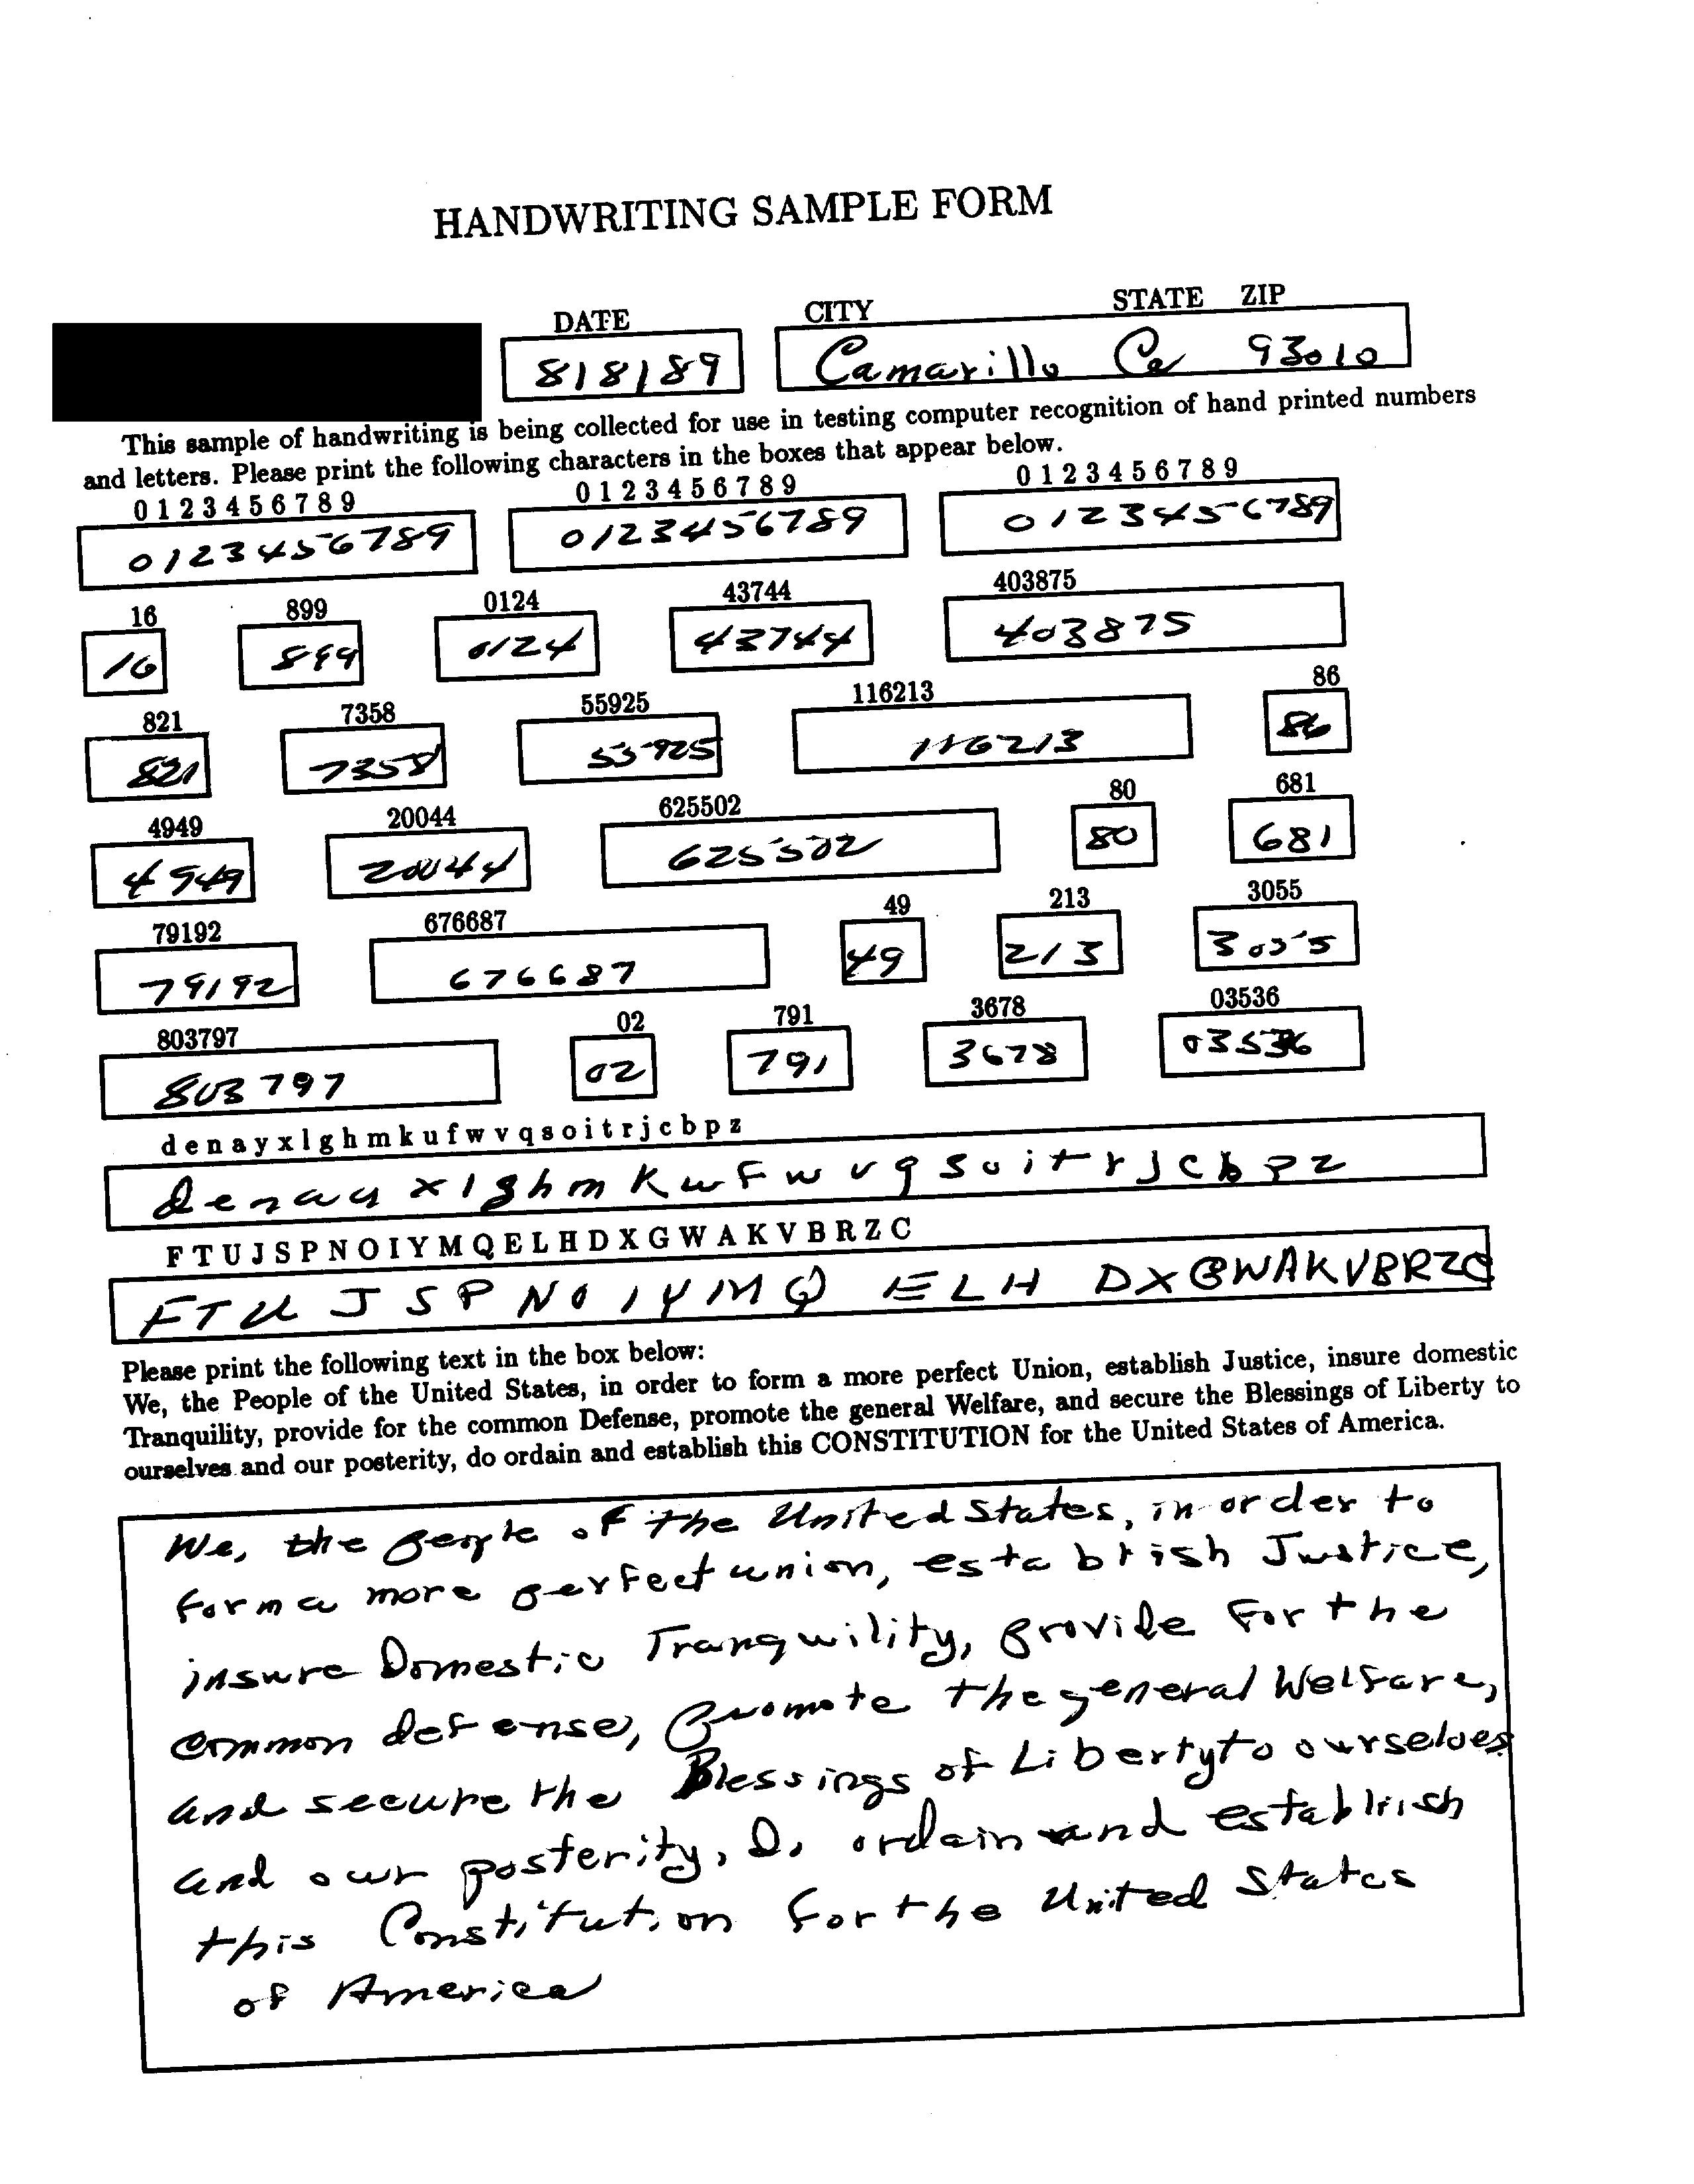 HANDWRITING SAMPLE FORM
DATE CITY STATE ZIP
8/8/89 Camarillo Ca 93010
This sample of handwriting is being collected for use in testing computer recognition of hand printed numbers
and letters. Please print the following characters in the boxes that appear below.
0 1 2 3 4 5 6 7 8 9 0 1 2 3 4 5 6 7 8 9 0 1 2 3 4 5 6 7 8 9
0123456789 0123456789 0123456789
16 899 0124 43744 403875
16 899 0124 43744 403875
821 7358 55925 116213 86
821 7358 55925 116213 86
4949 20044 625502 80 681
4949 20044 625502 80 681
79192 676687 49 213 3055
79192 676687 49 213 3055
803797 02 791 3678 03536
803797 02 791 3678 03536
d e n a y x l g h m k u f w v q s o i t r j c b p z
d e n a y x l g h m k u f w v q s o i t r j c b p z
F T U J S P N O I Y M Q E L H D X G W A K V B R Z C
F T U J S P N O I Y M Q E L H D X G W A K V B R Z C
Please print the following text in the box below:
We, the People of the United States, in order to form a more perfect Union, establish Justice, insure domestic
Tranquility, provide for the common Defense, promote the general Welfare, and secure the Blessings of Liberty to
ourselves and our posterity, do ordain and establish this CONSTITUTION for the United States of America.
We, the people of the United States, in order to
form a more perfect union, establish Justice,
insure Domestic Tranquility, provide for the
common defense, promote the general Welfare,
and secure the Blessings of Liberty to ourselves
and our posterity, Do ordain and establish
this Constitution for the United States
of America